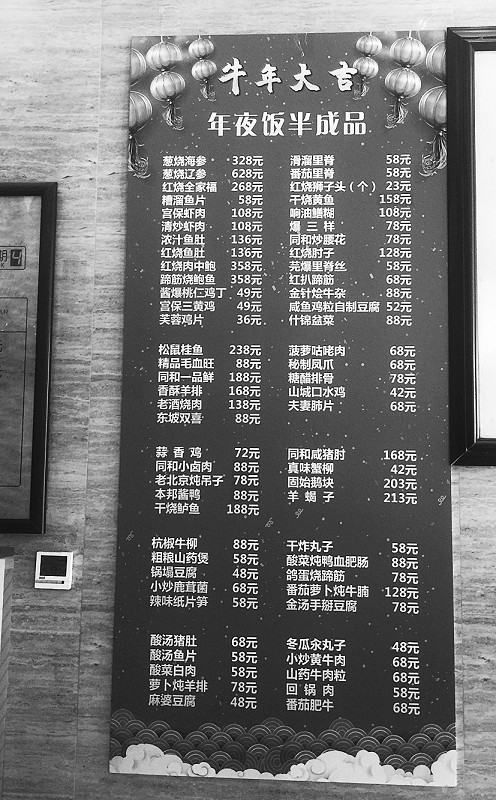 牛年大吉
年夜饭半成品
葱烧海参 328元
葱烧辽参 628元
红烧全家福 268元
糟溜鱼片 58元
宫保虾肉 108元
清炒虾肉 108元
浓汁鱼肚 136元
红烧鱼肚 136元
红烧肉中鲍 358元
蹄筋烧鲍鱼 358元
酱爆桃仁鸡丁 49元
宫保三黄鸡 49元
芙蓉鸡片 36元
滑溜里脊 58元
番茄里脊 58元
红烧狮子头（个） 23元
干烧黄鱼 158元
响油鳝糊 108元
爆三样 78元
同和炒腰花 78元
红烧肘子 128元
芫爆里脊丝 58元
红扒蹄筋 68元
金针烩牛杂 88元
咸鱼鸡粒自制豆腐 52元
什锦盆菜 88元
松鼠桂鱼 238元
精品毛血旺 88元
同和一品鲜 188元
香酥羊排 168元
老酒烧肉 138元
东坡双喜 88元
菠萝咕咾肉 68元
秘制凤爪 68元
糖醋排骨 78元
山城口水鸡 42元
夫妻肺片 68元
蒜香鸡 72元
同和小卤肉 88元
老北京炖吊子 78元
本邦酱鸭 88元
干烧鲈鱼 188元
同和咸猪肘 168元
真味蟹柳 42元
固始鹅块 203元
羊蝎子 213元
杭椒牛柳 88元
粗粮山药煲 58元
锅塌豆腐 48元
小炒鹿茸菌 68元
辣味纸片笋 58元
干炸丸子 58元
酸菜炖鸭血肥肠 88元
鸽蛋烧蹄筋 78元
番茄萝卜炖牛腩 128元
金汤手掰豆腐 78元
酸汤猪肚 68元
酸汤鱼片 58元
酸菜白肉 58元
萝卜炖羊排 78元
麻婆豆腐 48元
冬瓜汆丸子 48元
小炒黄牛肉 68元
山药牛肉粒 68元
回锅肉 58元
番茄肥牛 68元